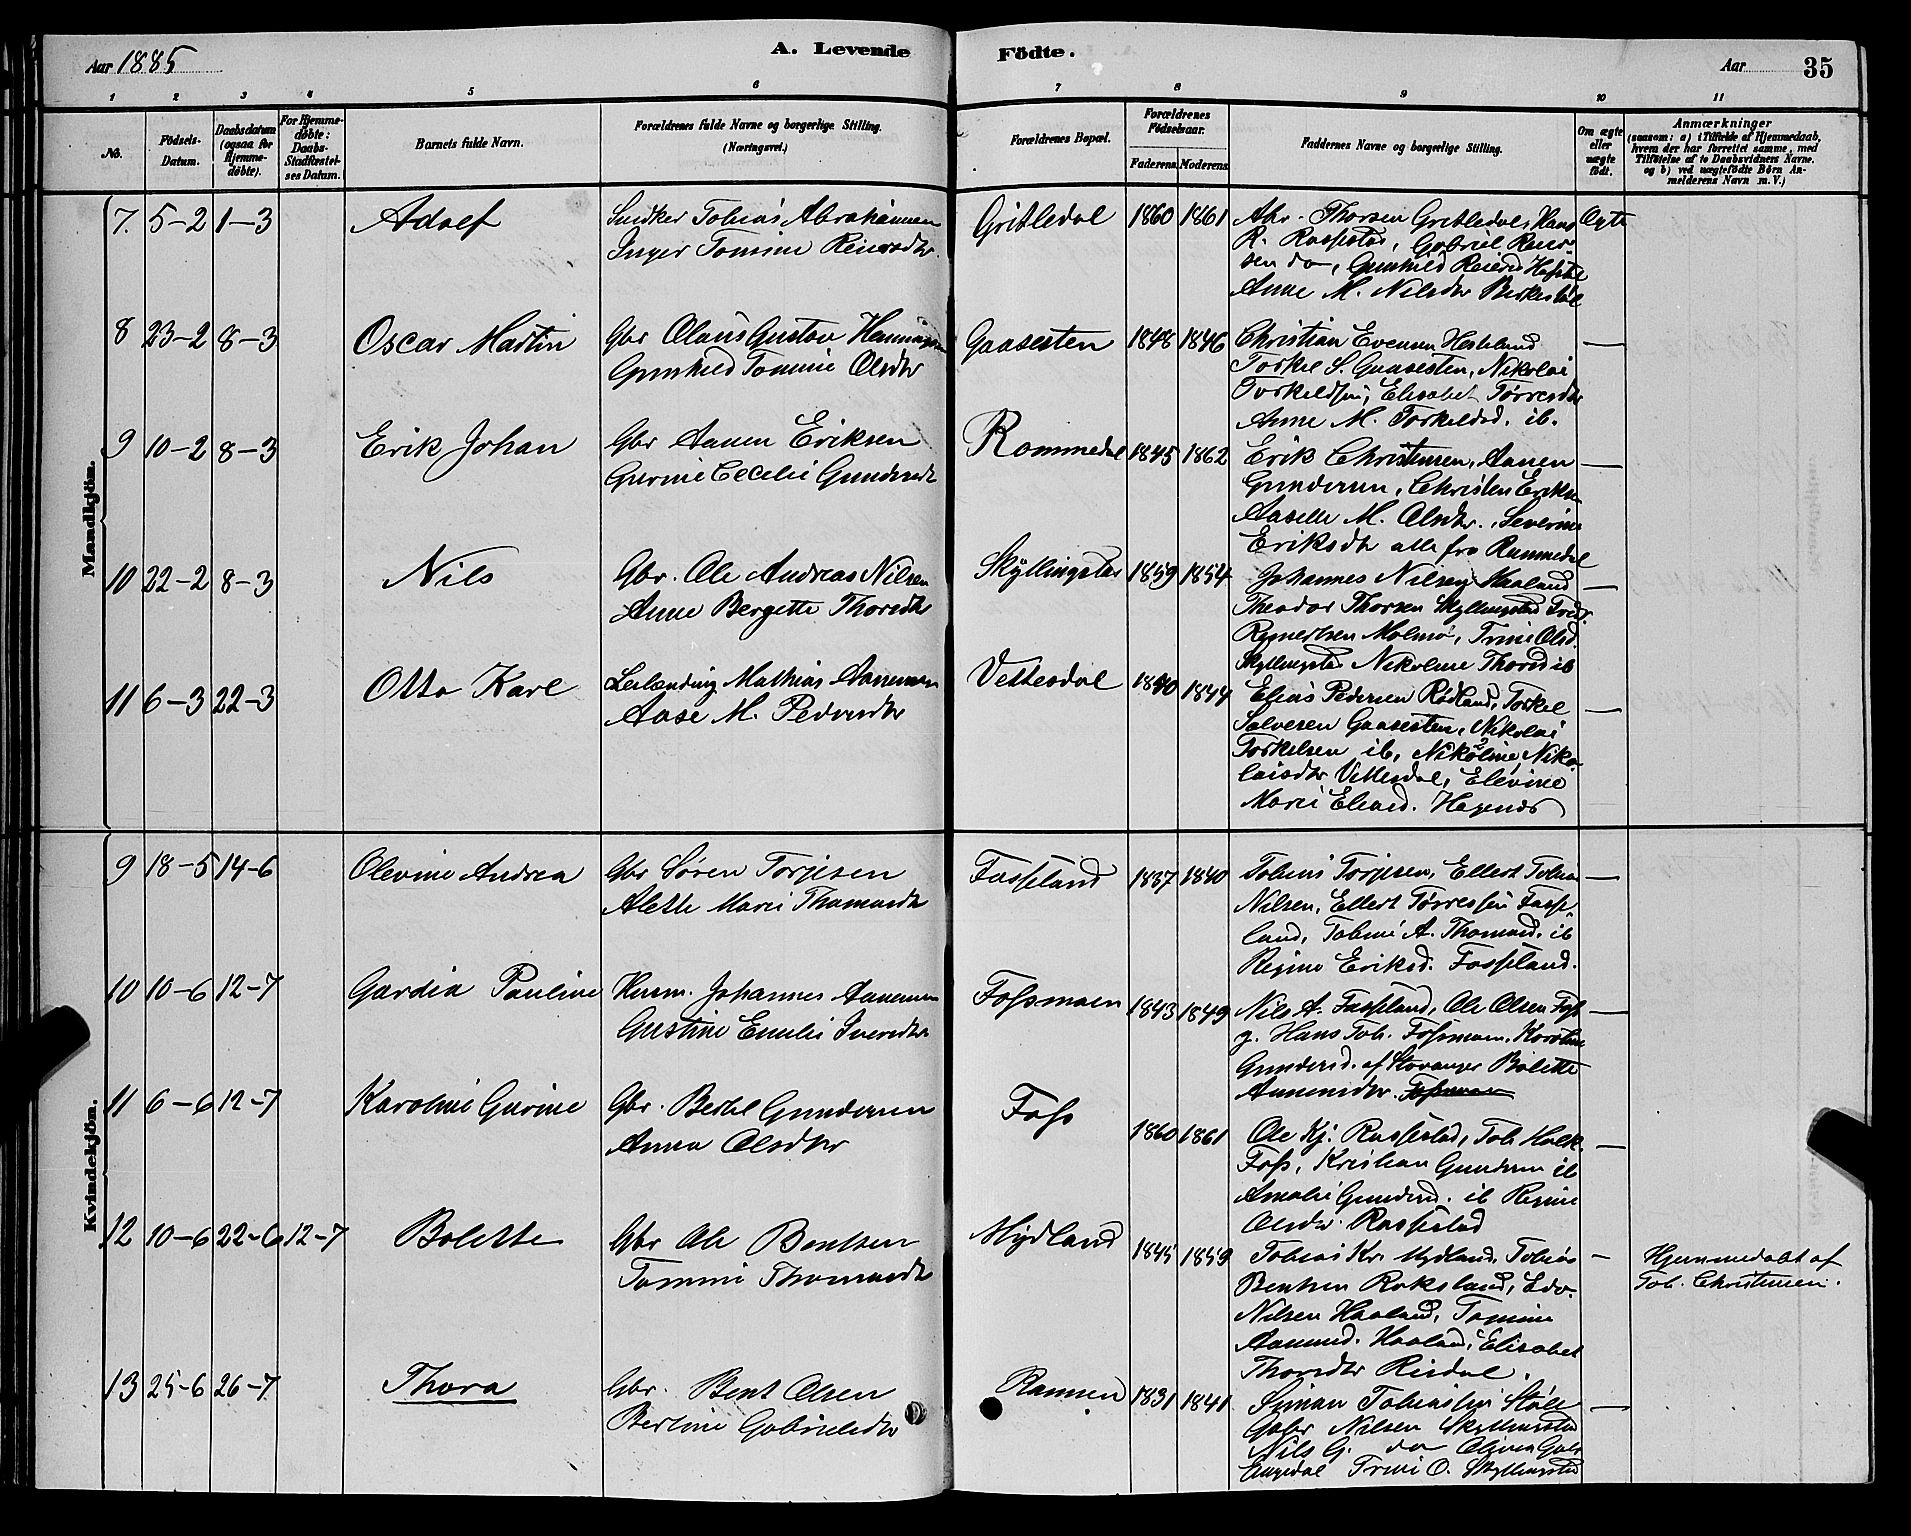 Aar 1885
A. Levende
Födte.
Aar 35
1 2 3 4 5 6 7 8 9 10 11
No.
Födsels-Datum.
Daabsdatum (ogsaa for Hjemme-døbte).
For Hjemme-døbte: Daabs-Stadfæstel-ses Datum.
Barnets fulde Navn.
Forældrenes fulde Navne og borgerlige Stilling. (Næringsvei.)
Forældrenes Bopæl.
Forældrenes Födselsaar.
Faderens. Moderens.
Faddernes Navne og borgerlige Stilling.
Om ægte eller uægte født.
Anmærkninger
(saasom: a) i Tilfælde af Hjemmedaab, hvem der har forrettet samme, med Tilføielse af to Daabsvidners Navne. og b) ved uægtefødte Børn An-melderens Navn m. V.)
Mandkjön.
7. 5-2 1-3 Adolf
Snidker Tobias Abrahamsen
Inger Tomine Reiersdtr.
Gritledal 1860 1861
Abr. Thorsen Gritledal, Hans
R. Rasfestad, Gabriel Reier-
sen do, Gunhild Reiersd
Anne M. Nilsdtr
Ægte
8 23-2 8-3 Oscar Martin
Gbr Olaus Gustav
Gunhild Tomine Olsdtr
Gaasesten 1848 1846
Christian Evensen Heskeland
Torkel S. Gaasesten, Nikolai
Torkeldsen, Elisabet Tørresdtr
Anne M. Torkeldsd. ib.
—
9 10-2 8-3 Erik Johan
Gbr Aanen Eriksen
Gurine Cecelie Gundersdt
Rommedal 1845 1862
Erik Christensen, Aanen
Gundersen, Christen Eriksen
Aaselle M. Olsdtr., Severine
Eriksdtr alle fra Rummedal
—
10 22-2 8-3 Nils
Gbr. Ole Andreas Nilsen
Anne Bergette Thorsdtr
Skyllingstad 1859 1854
Johannes Nilsen Haaland
Theodor Thorsen Skyllingstad Fredr.
Reinertsen Molmo, Trine Olsd.
Skyllingstad Nikoline Thorsd ib
—
11 6-3 22-3 Otto Karl
Leilænding Mathias Aanensen
Aase M. Pedersdtr
Vettesdal 1840 1844
Elias Pedersen Rødland, Torkel
Salvesen Gaasesten, Nikolai
Torkelsen ib, Nikoline Niko-
laisdtr Vettesdal, Elevine
Marie Eliasd.
—
Kvindekjön.
9 18-5 14-6 Olevine Andrea
Gbr Søren Torjesen
Alette Marie Thomasdtr
Fasseland 1837 1840
Tobias Torjesen, Ellert Tobias
Nilsen, Ellert Tørressen Fasse-
land, Toline A. Thomasd. ib
Regine Eriksd. Fosseland.
—
10 10-6 12-7 Gardia Pauline
Husm. Johannes Aanensen
Gustine Emilie Iversdtr.
Fossmoen 1843 1849
Nils A. Fasseland, Ole Olsen Foss
g. Hans Tob. Fossmoen, Karoline
Gundersd. af Stavanger Bolette
Aanensdtr. Fossmoen
—
11 6-6 12-7 Karoline Gurine
Gbr. Bertel Gundersen
Anna Olsdtr
Foss 1860 1861
Ole Kj. Rassestad, Tob.
Foss, Kristian Gundersen ib
Amalie Gundersd. ib Regine
Olsdtr. Rassestad
—
12 10-6 22-6 12-7 Bolette
Gbr Ole Bentsen
Tomine Thomasdtr
Mydland 1845 1859
Tobias Kr. Mydland, Tobias
Bentsen Roksland, Edv.
Nilsen Haaland, Tomine
Aanensd. Haaland, Elisabet
Thorsdtr Risdal.
—
Hjemmedøbt af
Tob. Christensen.
13 25-6 26-7 Thora
Gbr. Bent Olsen
Bertine Gabrielsdtr
Ramsen 1831 1841
Simon Tobiassen Støle
Gabr Nilsen Skyllingstad
Nils G. do Olivia Gabr
Trine O. Skyllingstad
—